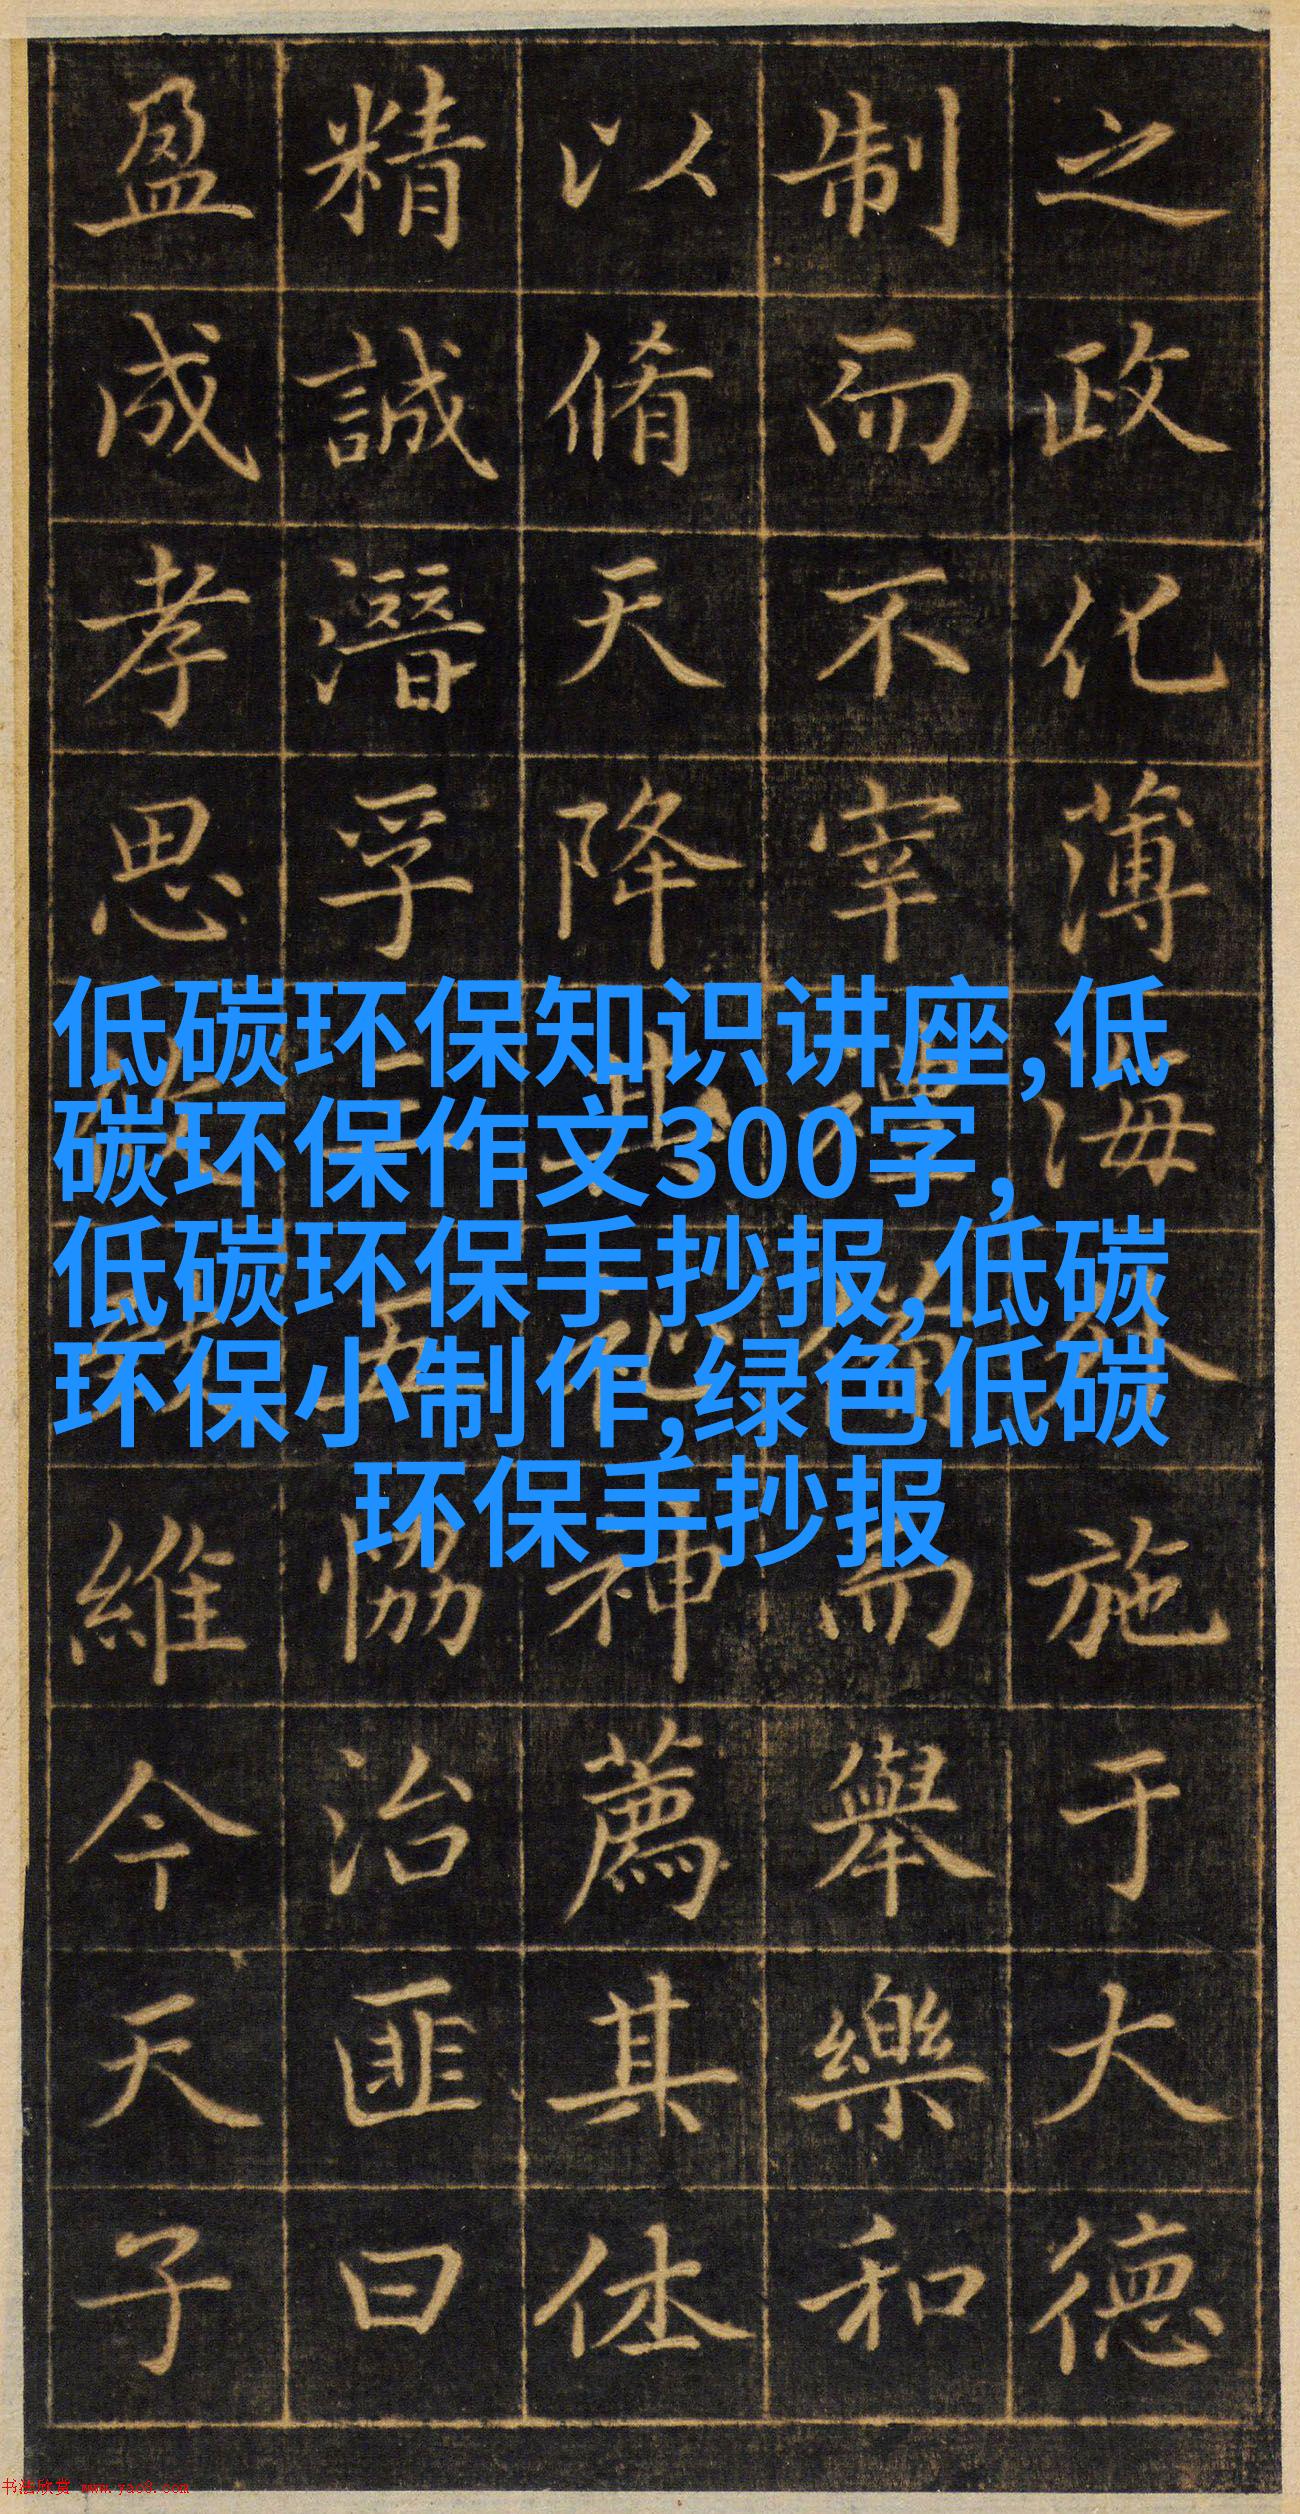 低碳环保知识讲座,低
碳环保作文300字,
低碳环保手抄报,低碳
环保小制作,绿色低碳
环保手抄报
之政化薄海施于大德
制而不宰而舉樂和
以脩天降神薦其体
精誠潛孚五恊治匪曰
盈成孝思維今天子
书法欣赏 www.yac8.com